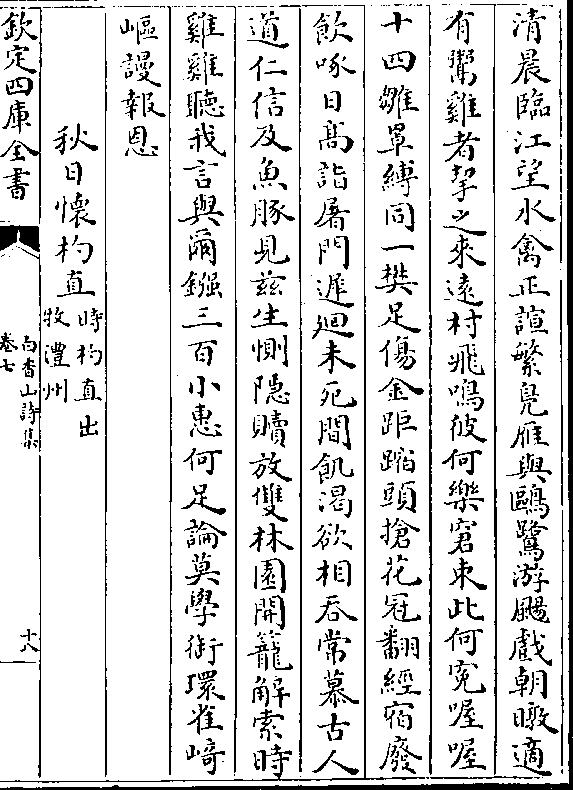 清晨臨江望水禽正諠繁鳬雁與鷗鷺游颺戲朝暾適
有鬻雞者挈之來遠村飛鳴彼何樂窘束此何寃喔喔
十四雛罩縛同一樊足傷金距蹜頭搶花冠翻經宿廢
飲啄日髙詣屠門遲廻未死間飢渴欲相呑常慕古人
道仁信及魚豚見兹生惻隠贖放雙林園開籠解索時
雞雞聽我言與爾鏹三百小惠何足論莫學銜環雀﨑
嶇謾報恩
秋日懷杓直
時杓直出
牧澧州
欽定四庫全書
白香山詩集
卷七
十八